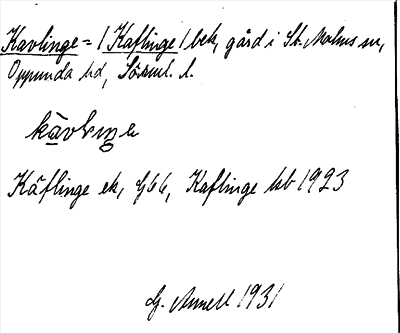 Kavlinge = | Kaflinge | bek, gård i St. Malms sn,
Oppunda hd, Sörml. l.
kävlınge
Käflinge ek, G66, Kaflinge kb 1923
G. Annell 1931